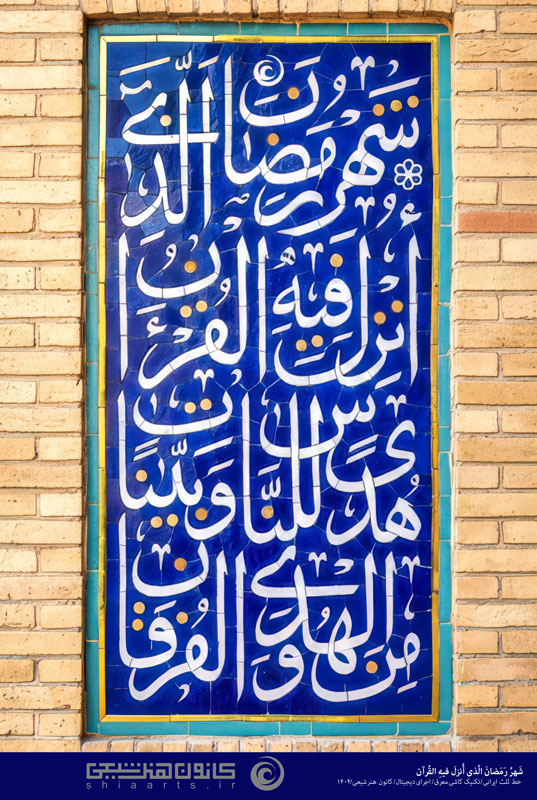 شَهْرُ رَمَضَانَ الَّذِي
أُنْزِلَ فِيهِ الْقُرْءَانُ
هُدًى لِلنَّاسِ وَبَيِّنَاتٍ
مِنَ الْهُدَى وَالْفُرْقَانِ
شَهرُ رَمَضانَ الَّذی أُنزِلَ فیهِ القُرآن
خط ثلث ایرانی/تکنیک کاشی معرق/اجرای دیجیتال/کانون هنرشیعی/۱۴۰۴
کانون هنر شیعی
shiaarts.ir